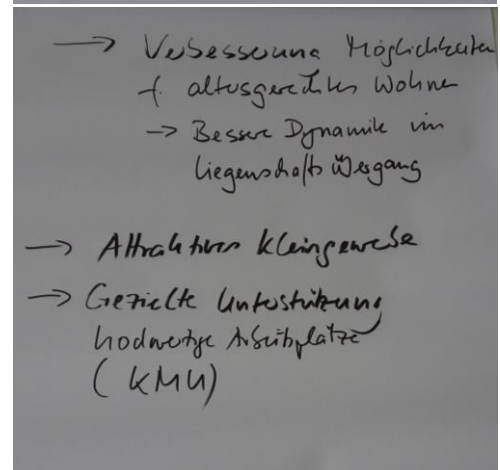 → Verbesserung Möglichkeiten
f. altersgerechtes Wohnen
→ Bessere Dynamik im
Liegenschafts Übergang
→ Attraktives Kleingewerbe
→ Gezielte Unterstützung
hochwertige Arbeitsplätze
(KMU)